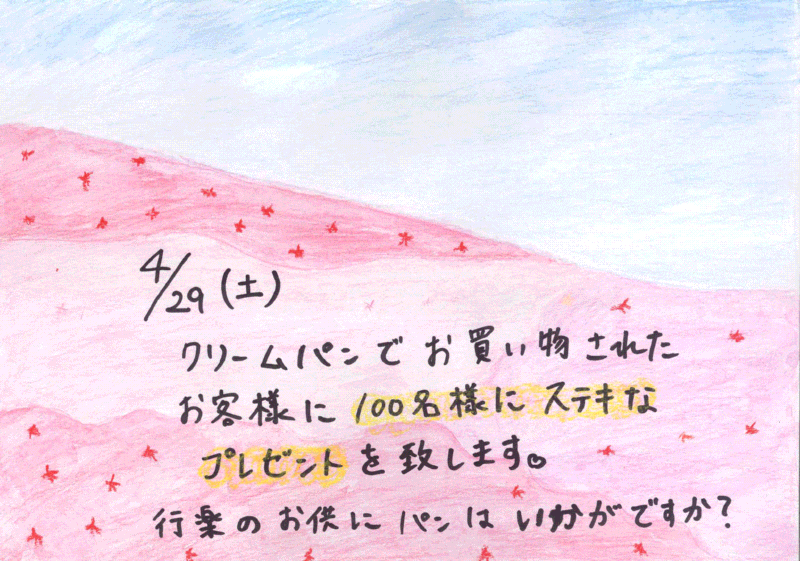 4/29(土)
クリームパンでお買い物された
お客様に100名様にステキな
プレゼントを致します。
行楽のお供にパンはいかがですか?